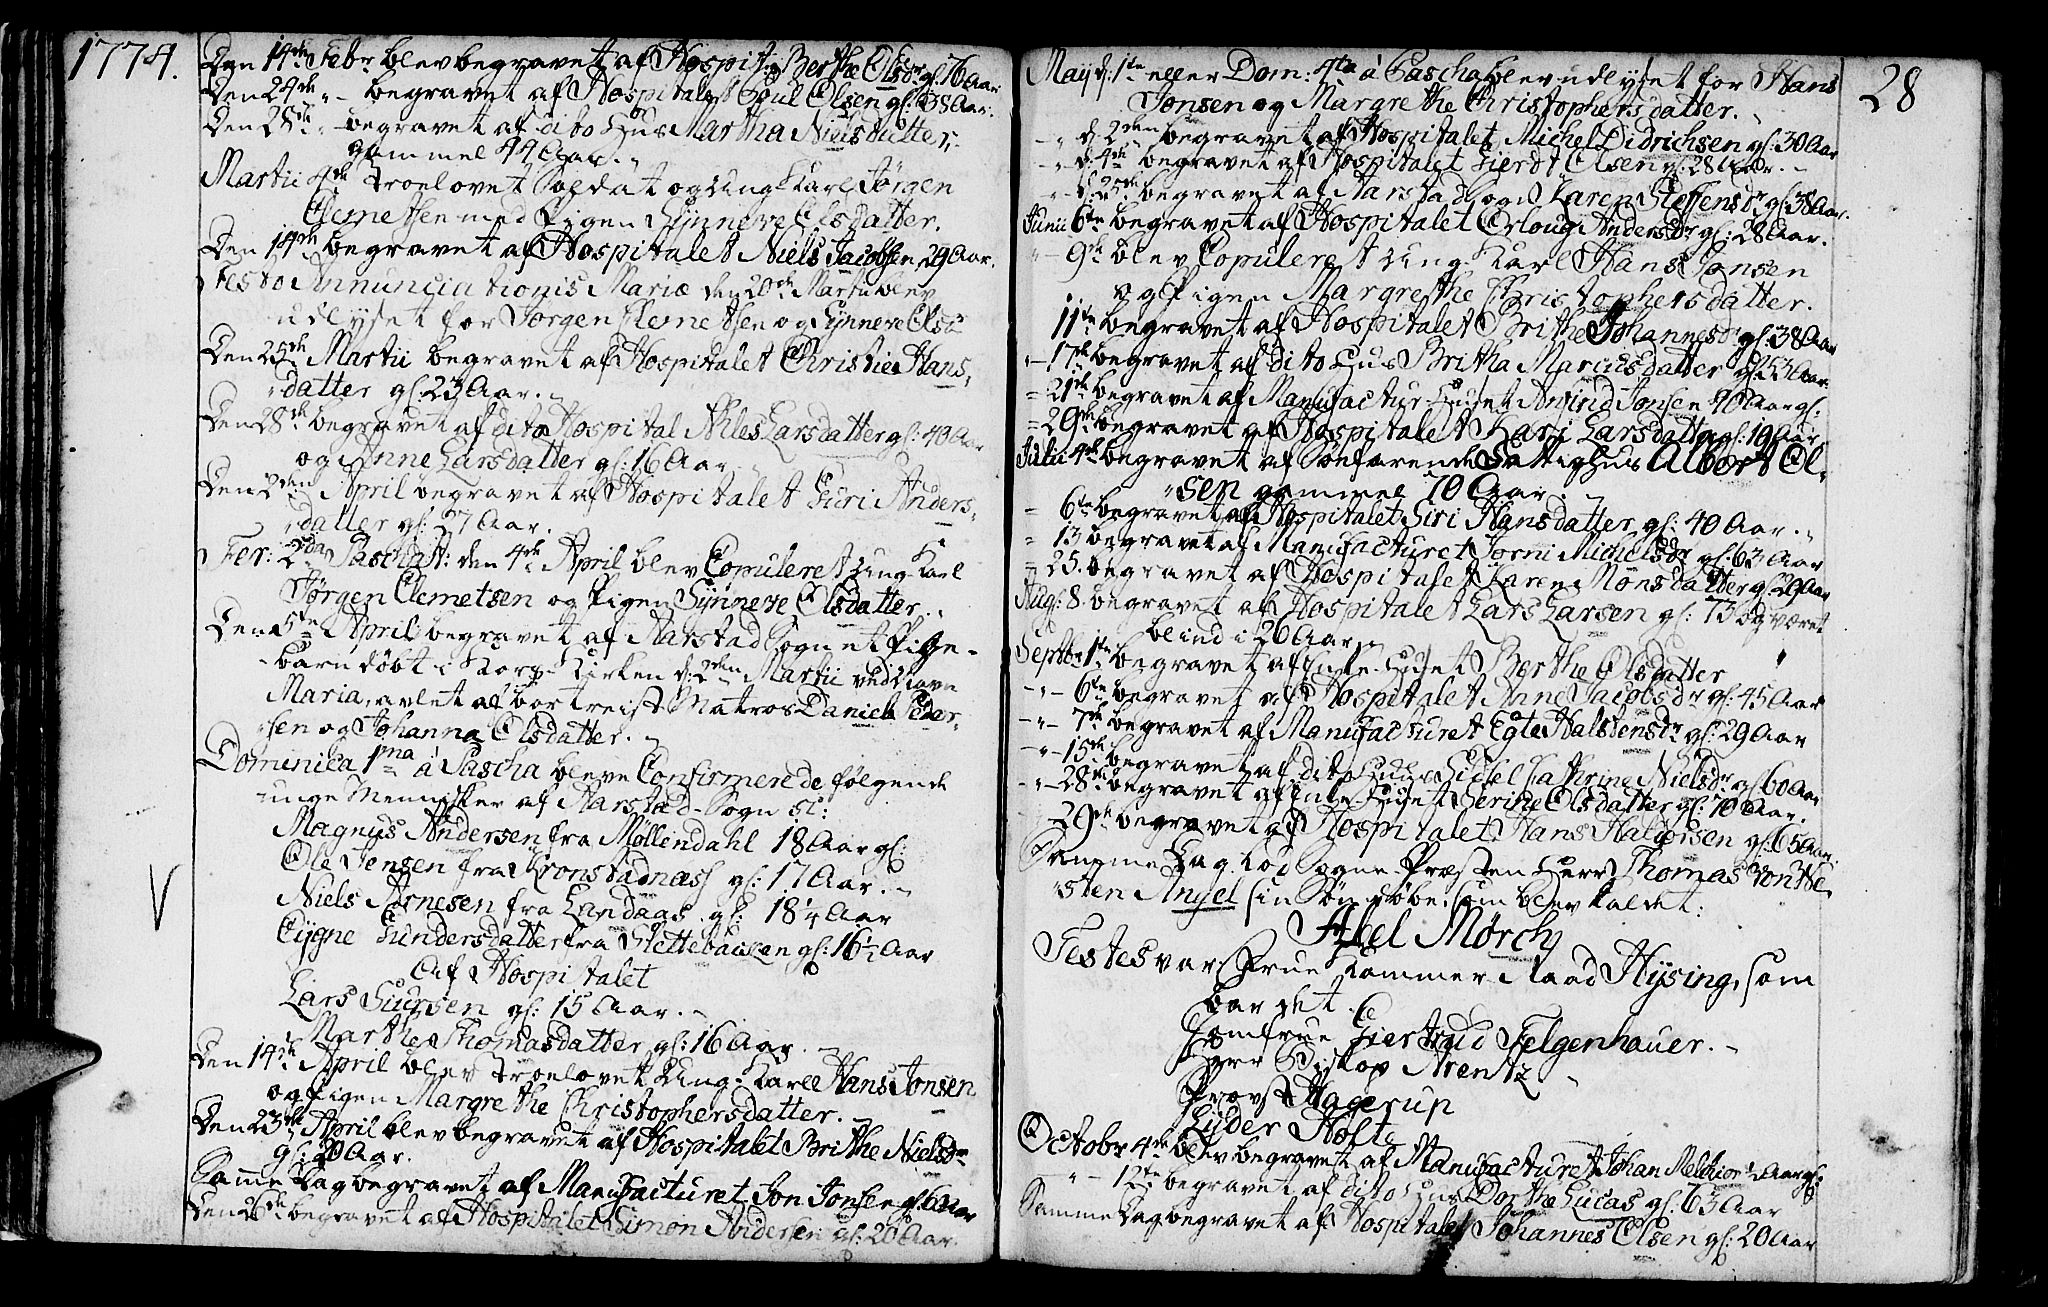 1774.
Den 14de Febr blev begravet af Hospit: Berthe Olsdr gl: 76 Aar
Den 24de " - begravet af Hospitalet Poul Olsen gl: 38 Aar.
Den 28de " - begravet af dito Huus Martha Nielsdatter,
gammel 44 Aar.
Martii 4de Troelovet Soldat og ung Karl Jørgen
Clemetsen med Pigen Synneve Olsdatter.
Den 14de begravet af Hospitalet Niels Jacobsen, 29 Aar.
Festo Annunciationis Mariæ den 20de Martii blev
udlyset for Jørgen Clemetsen og Synneve Olsd
Den 25de Martii begravet af Hospitalet Christie Hans,
datter gl: 23 Aar.
Den 28de begravet af dito Hospital Niles Larsdatter gl: 40 Aar
og Anne Larsdatter gl: 16 Aar
Den 2den April begravet af Hospitalet Guri Anders,
datter gl: 27 Aar.
Fer: 2da Paschat: den 4de April blev Copuleret ung Karl
Jørgen Clemetsen og Pigen Synneve Olsdatter.
Den 5te April begravet af Aarstad Sogn et Pige-
barn døbt i Kors-Kirken d: 2den Martii ved Navn
Maria, avlet af bortreist Matros Daniel Peder-
sen og Johanna Olsdatter.
Dominica 1ma à Pascha bleve Confirmerede følgende
unge Mennisker af Aarstad-Sogn sc:
Magnus Andersen fra Møllendahl 18 Aar gl:
Ole Jensen fra Kronstadnæss gl: 17 Aar.
Niels Arnesen fra Landaas gl: 18 1/4 Aar
Eygne Gundersdatter fra Slettebakken gl: 16 1/2 Aar
Af Hospitalet
Lars Siursen gl: 15 Aar.
Marthe Thomasdatter gl: 16 Aar.
Den 14de April blev Troelovet Ung-Karl Hans Jonsen
og Pigen Margrethe Christophersdatter.
Den 23de April blev begravet af Hospitalet Brithe Nielsdr
gl: 20 Aar.
Same Dag begravet af Manufacturet Jon Jonsen gl: 6 Aar
Den 26de begravet af Hospitalet Simon Andersen gl: 20 Aar.
28
Maij d: 1te eller Dom: 4ta à Pascha blev udlyset for Hans
Jonsen og Margrethe Christophersdatter.
- " d: 2den begravet af Hospitalet Michel Didrichsen gl: 30 Aar
- " d: 4de begravet af Hospitalet Siert Olsen gl: 28 Aar.
- " d: 25de begravet af Aarstad Sogn Karen Steffensdr gl: 38 Aar.
Junii 6te begravet af Hospitalet Orloug Andersdr gl: 28 Aar.
" - 9de blev Copuleret ung Karl Hans Jonsen
og Pigen Margrethe Christophersdatter.
11te begravet af Hospitalet Brithe Johannesdr gl: 38 Aar
" - 17de begravet af dito Huus Britha Marcusdatter gl: 53 Aar.
= 21de begravet af Manufactur-Huset Anfind Jonsen 90 Aar gl:
= 29de begravet af Hospitalet Kari Larsdatter gl: 19 Aar
Julii 4de begravet af Søefarende Fattighuus Albert Ol-
sen gammel 70 Aar.
- 6te begravet af Hospitalet Siri Hansdatter gl: 40 Aar.
= 13 begravet af Manufacturet Jorni Michelsdr gl: 63 Aar
= 25. begravet af Hospitalet Karen Monsdatter gl: 29 Aar
Aug: 8. begravet af Hospitalet Lars Larsen gl: 73 og været
blind i 26 Aar
Septbr 1te begravet af Enke-Huset Berthe Olsdatter
- " - 6te begravet af Hospitalet Anne Jacobsdr gl: 45 Aar
- " - 7de begravet af Manufacturet Egte Halstensdr gl: 29 Aar
- " - 15de begravet af dito Huus Sidsel Cathrine Nielsdr gl: 60 Aar
- " - 28de begravet af Enke-Huset Serine Olsdatter gl: 70 Aar.
29de begravet af Hospitalet Hans Halvorsen gl: 65 Aar.
Samme Dag lod Sogne-Præsten Herr Thomas von We-
sten Angel sin Søn døbe, som blev kaldet:
Abel Mørch
Testes var Frue Kammer-Raad Hysing, som
bar det.
Jomfrue Giertrud Felgenhauer.
Herr Biskop Arentz
Provst Hagerup
Lyder Hofte
Octobr 4de blev begravet af Manufacturet Johan Melchior 1/2 Aar gl:
" - 12te begravet af dito Huus Dorthe Lucas gl: 63 Aar
Samme Dag begravet af Hospitalet Johannes Olsen gl: 20 Aar